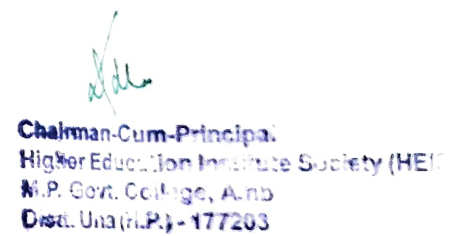 Chairman-Cum-Principal
Higher Education Institute Society (HEI
M.P. Govt. College, Amb
Distt. Una (H.P.) - 177203